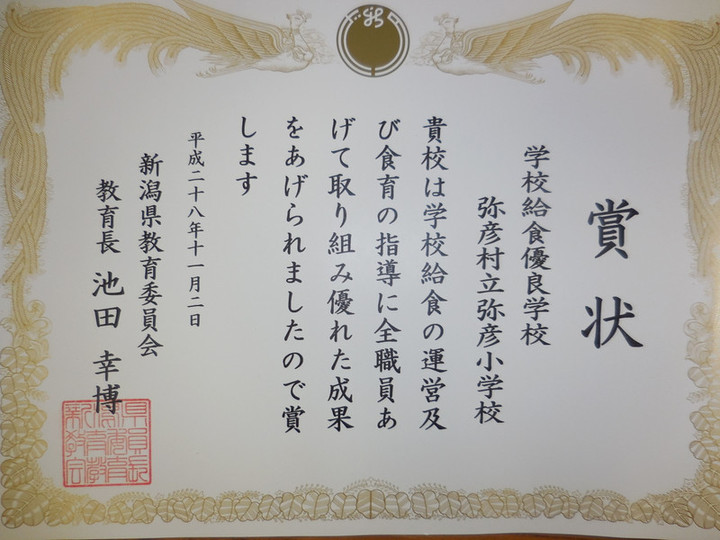 賞状
学校給食優良学校
弥彦村立弥彦小学校
貴校は学校給食の運営及
び食育の指導に全職員あ
げて取り組み優れた成果
をあげられましたので賞
します
平成二十八年十一月二日
新潟県教育委員会
教育長 池田 幸博